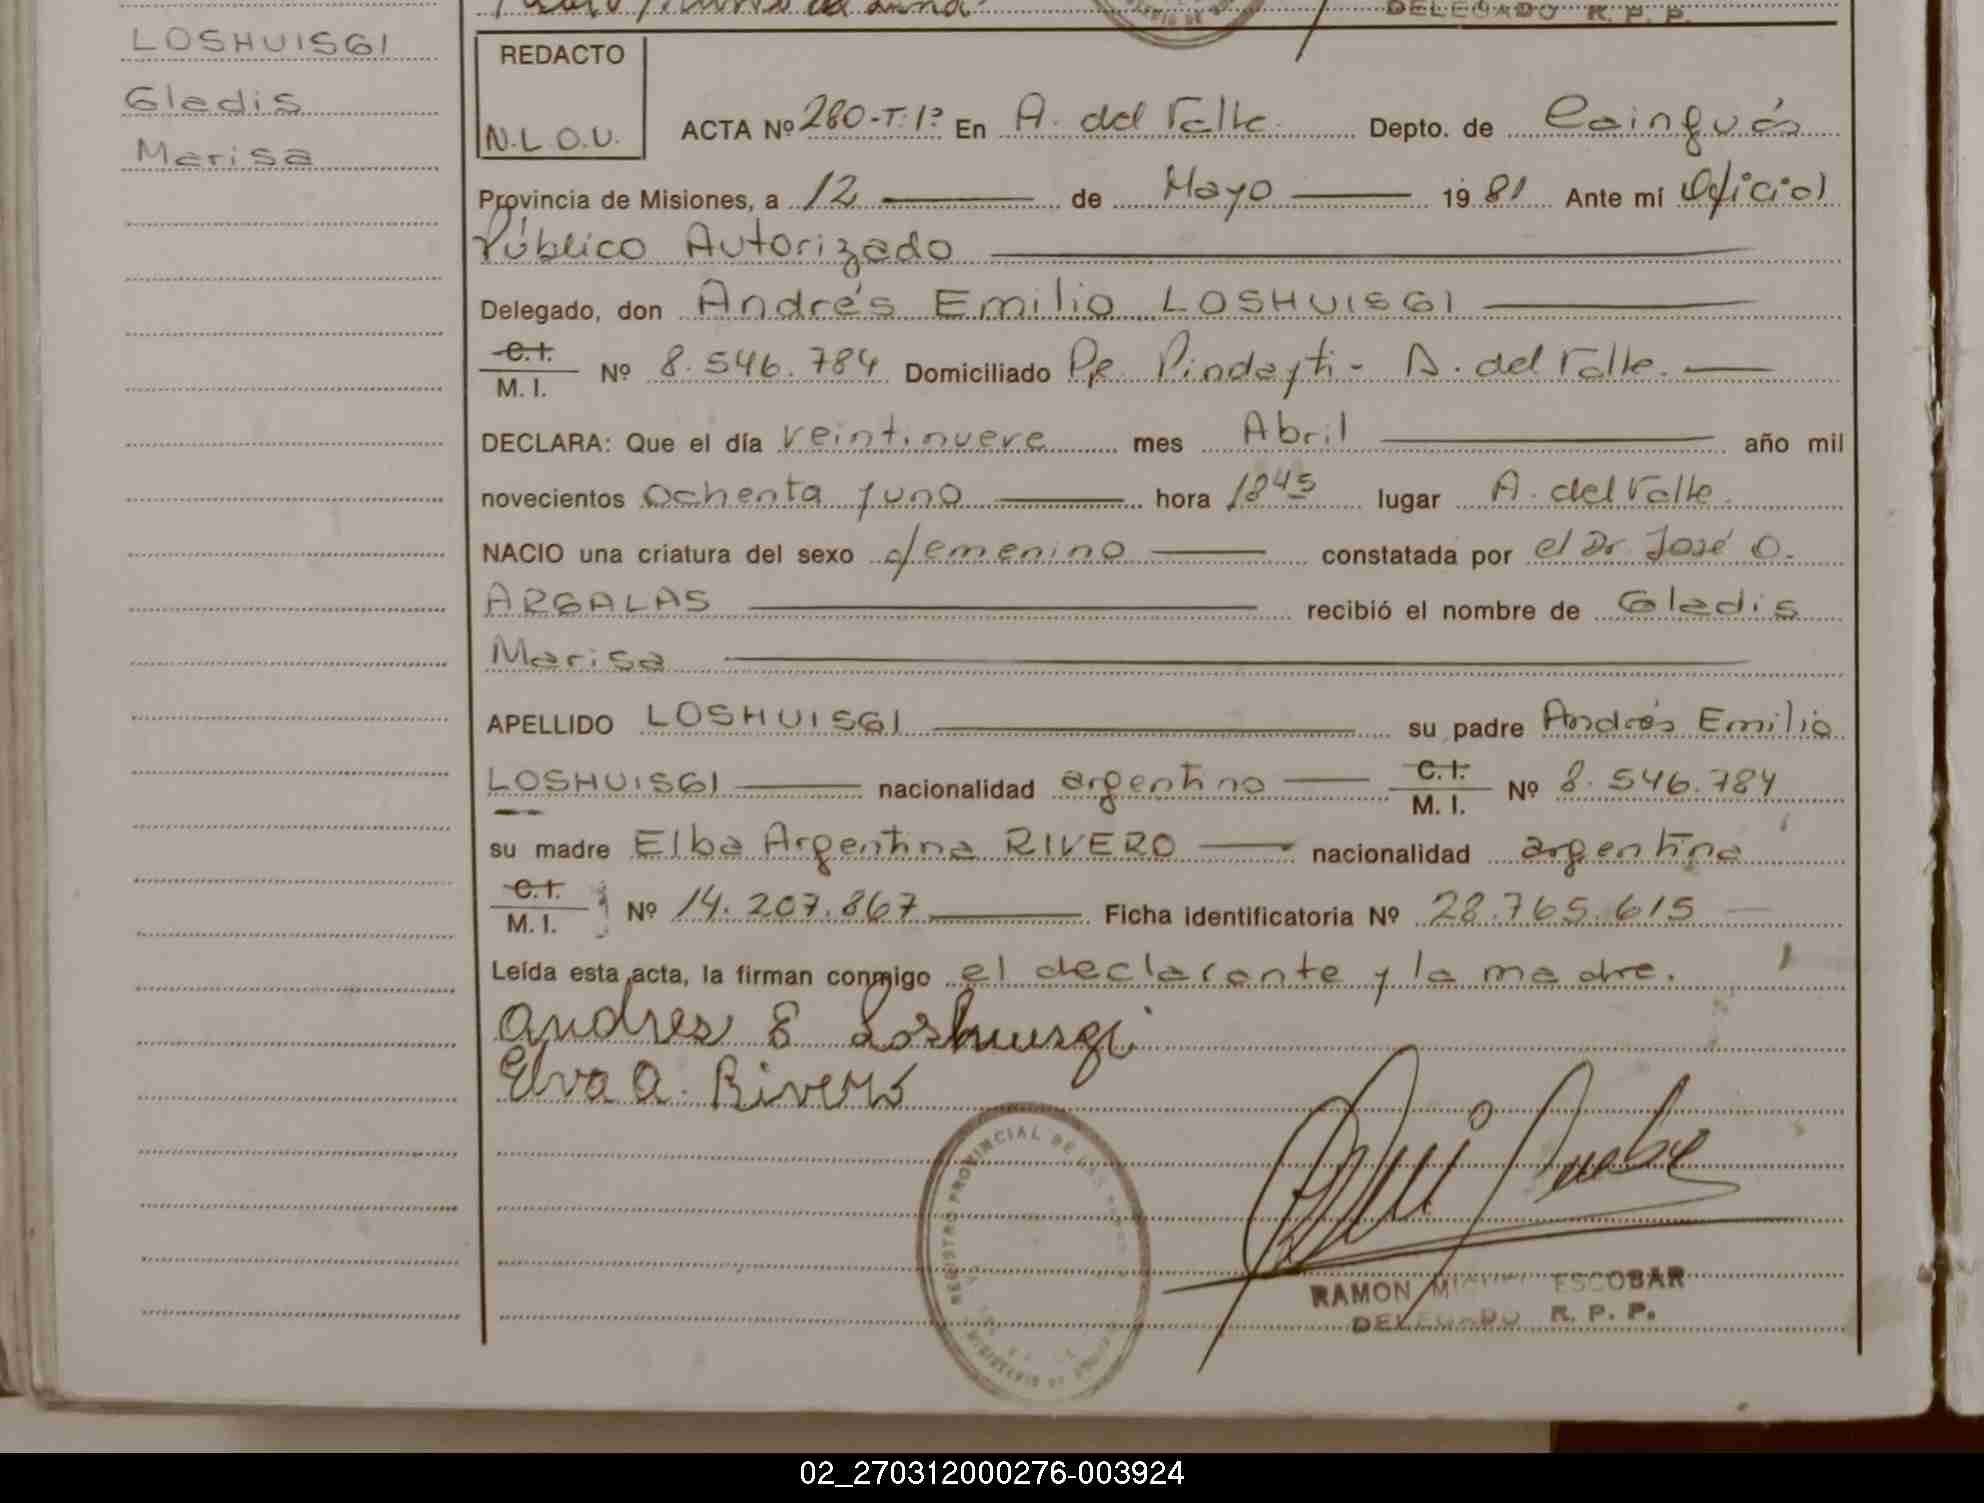 DELEGADO R. P. P.
LOSHUISGI
Gladis
Marisa
REDACTO
N.L.O.U.
ACTA Nº 280-T.1º En A. del Valle Depto. de Cainguás
Provincia de Misiones, a 12 de Mayo 1981 Ante mí Oficial
Público Autorizado
Delegado, don Andrés Emilio LOSHUISGI
C.I. / M. I. Nº 8.546.784 Domiciliado Pje Pindayti - A. del Valle.
DECLARA: Que el día veintinueve mes Abril año mil
novecientos Ochenta y uno hora 18 45 lugar A. del Valle.
NACIO una criatura del sexo femenino constatada por el Dr. José O.
ARGALAS recibió el nombre de Gladis
Marisa
APELLIDO LOSHUISGI su padre Andrés Emilio
LOSHUISGI nacionalidad argentino C. I. / M. I. Nº 8.546.784
su madre Elba Argentina RIVERO nacionalidad argentina
C.I. / M. I. Nº 14.207.867 Ficha identificatoria Nº 28.765.615
Leída esta acta, la firman conmigo el declarante y la madre.
Andres E Loshuisgi
Elva A. Rivero
REGISTRO PROVINCIAL DE LAS
RAMON MIGUEL ESCOBAR
DELEGADO R. P. P.
02_270312000276-003924